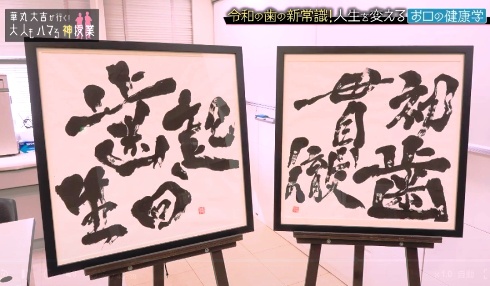 華丸大吉が行く!
大人もハマる神授業
令和の歯の新常識!人生を変える お口の健康学
起歯
回生
初歯
貫徹